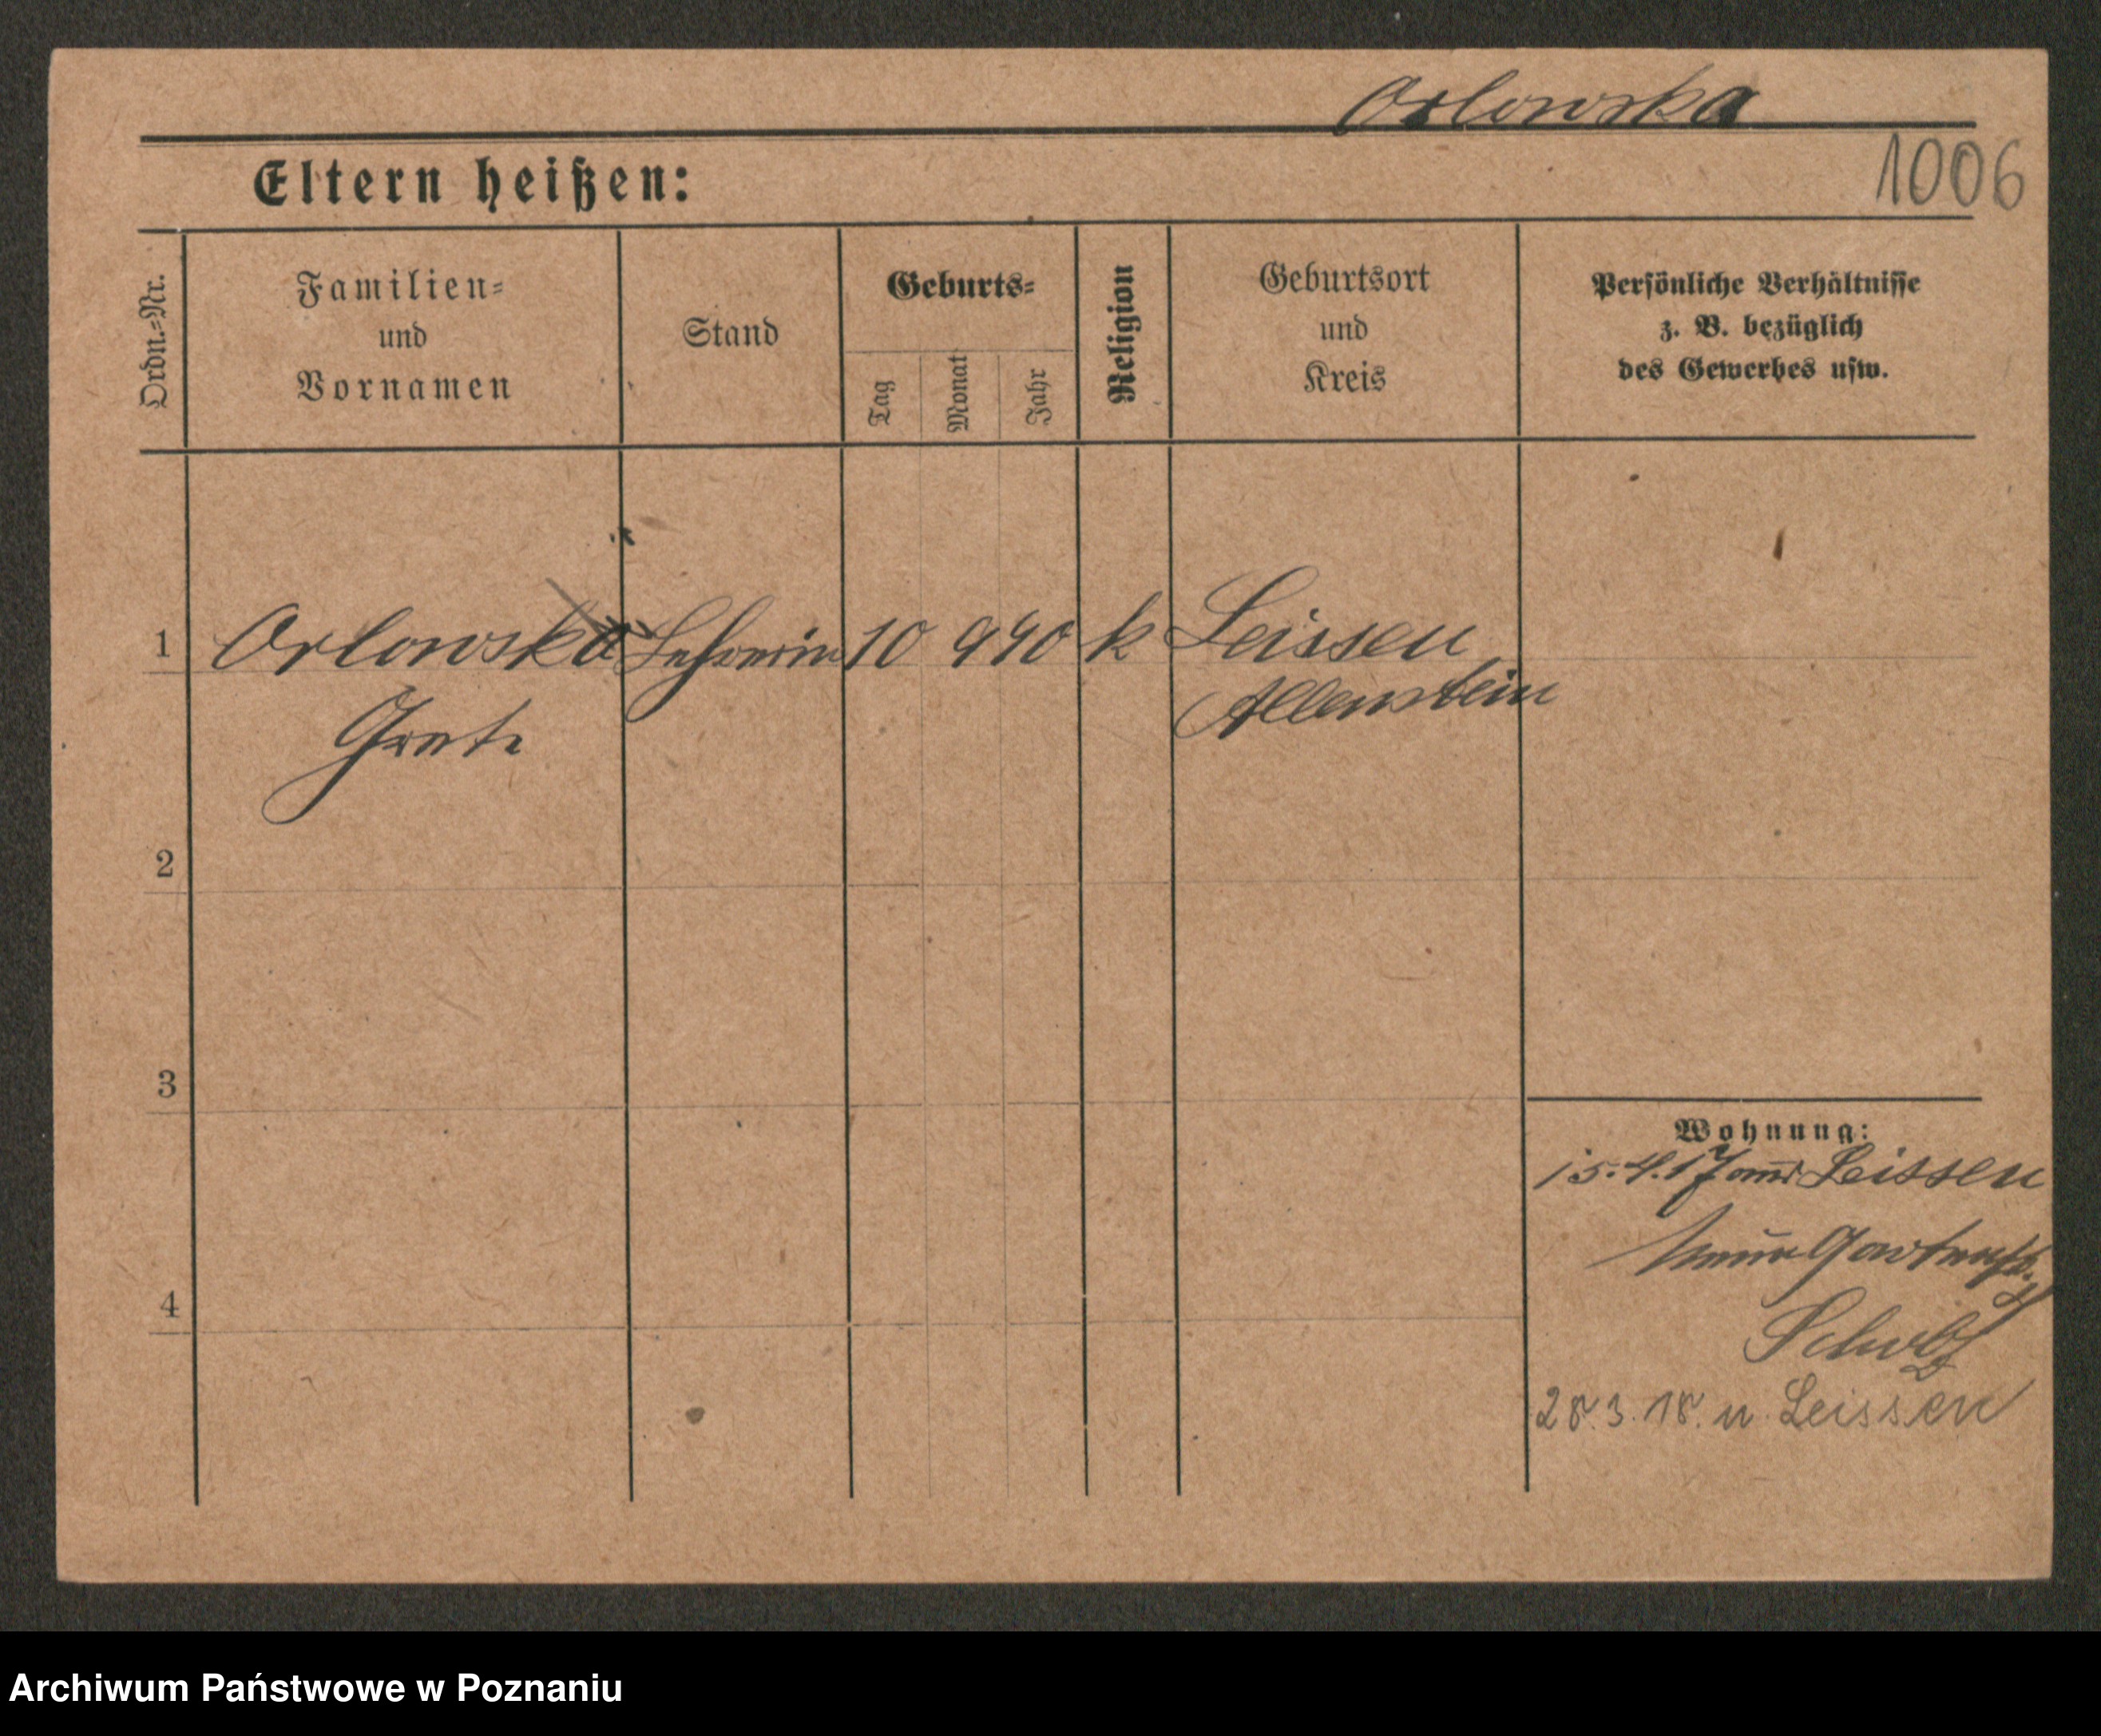 Orlowska
1006
Eltern heißen:
Ordn.=Nr.
Familien=
und
Vornamen
Stand
Geburts=
Tag
Monat
Jahr
Religion
Geburtsort
und
Kreis
Persönliche Verhältnisse
z. B. bezüglich
des Gewerbes usw.
1 Orlowska Lehrerin 10 9 90 k Leissen
Grete Allenstein
2
3
4
Wohnung:
15.4.17 aus Leissen
Neue Gartenstr.
28.3.18. n. Leissen
Archiwum Państwowe w Poznaniu